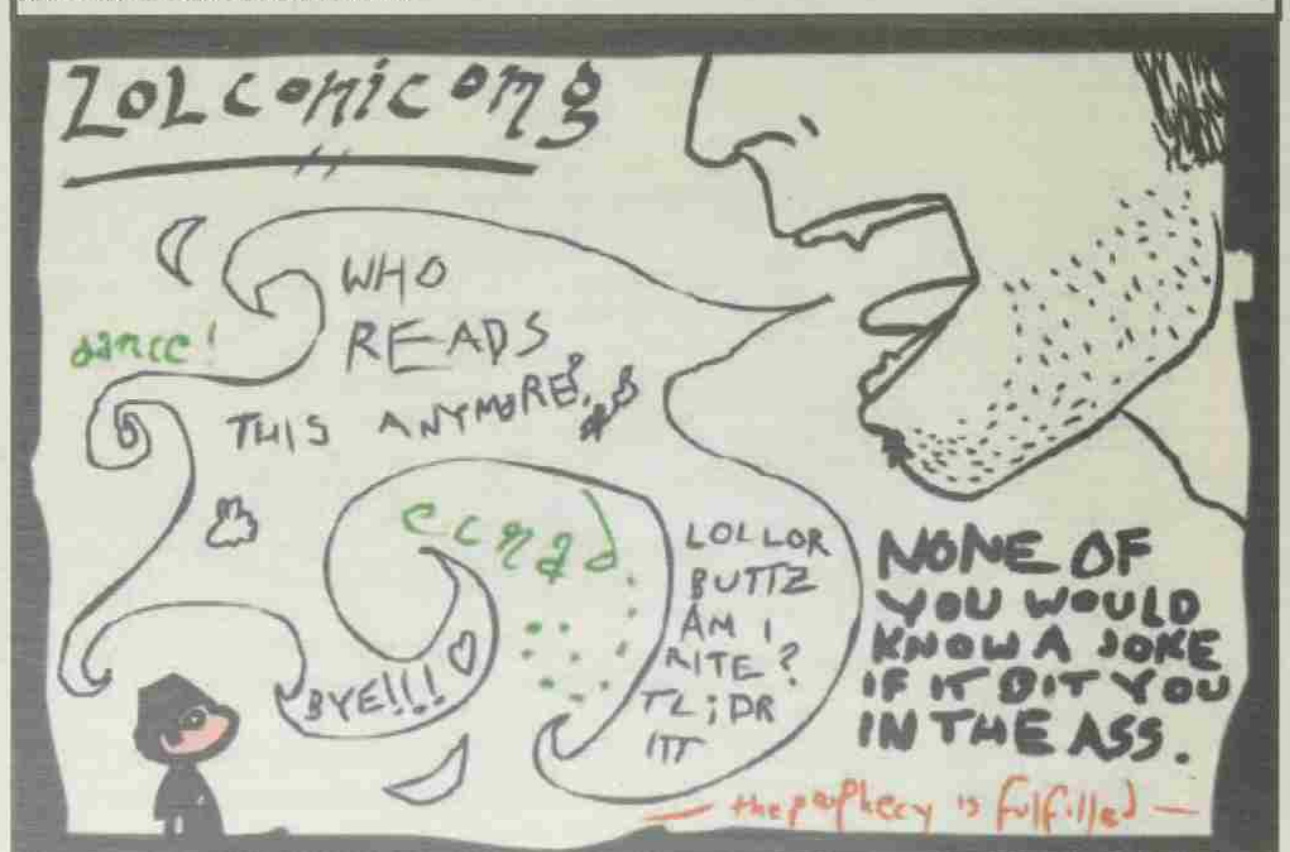 ZOLcomicomg
WHO
READS
THIS ANYMORE?
dance!
ecnad
BYE!!!
LOL LOR
BUTTZ
AM I
RITE?
TL;DR
ITT
NONE OF
YOU WOULD
KNOW A JOKE
IF IT BIT YOU
IN THE ASS.
— the prophecy is fulfilled —